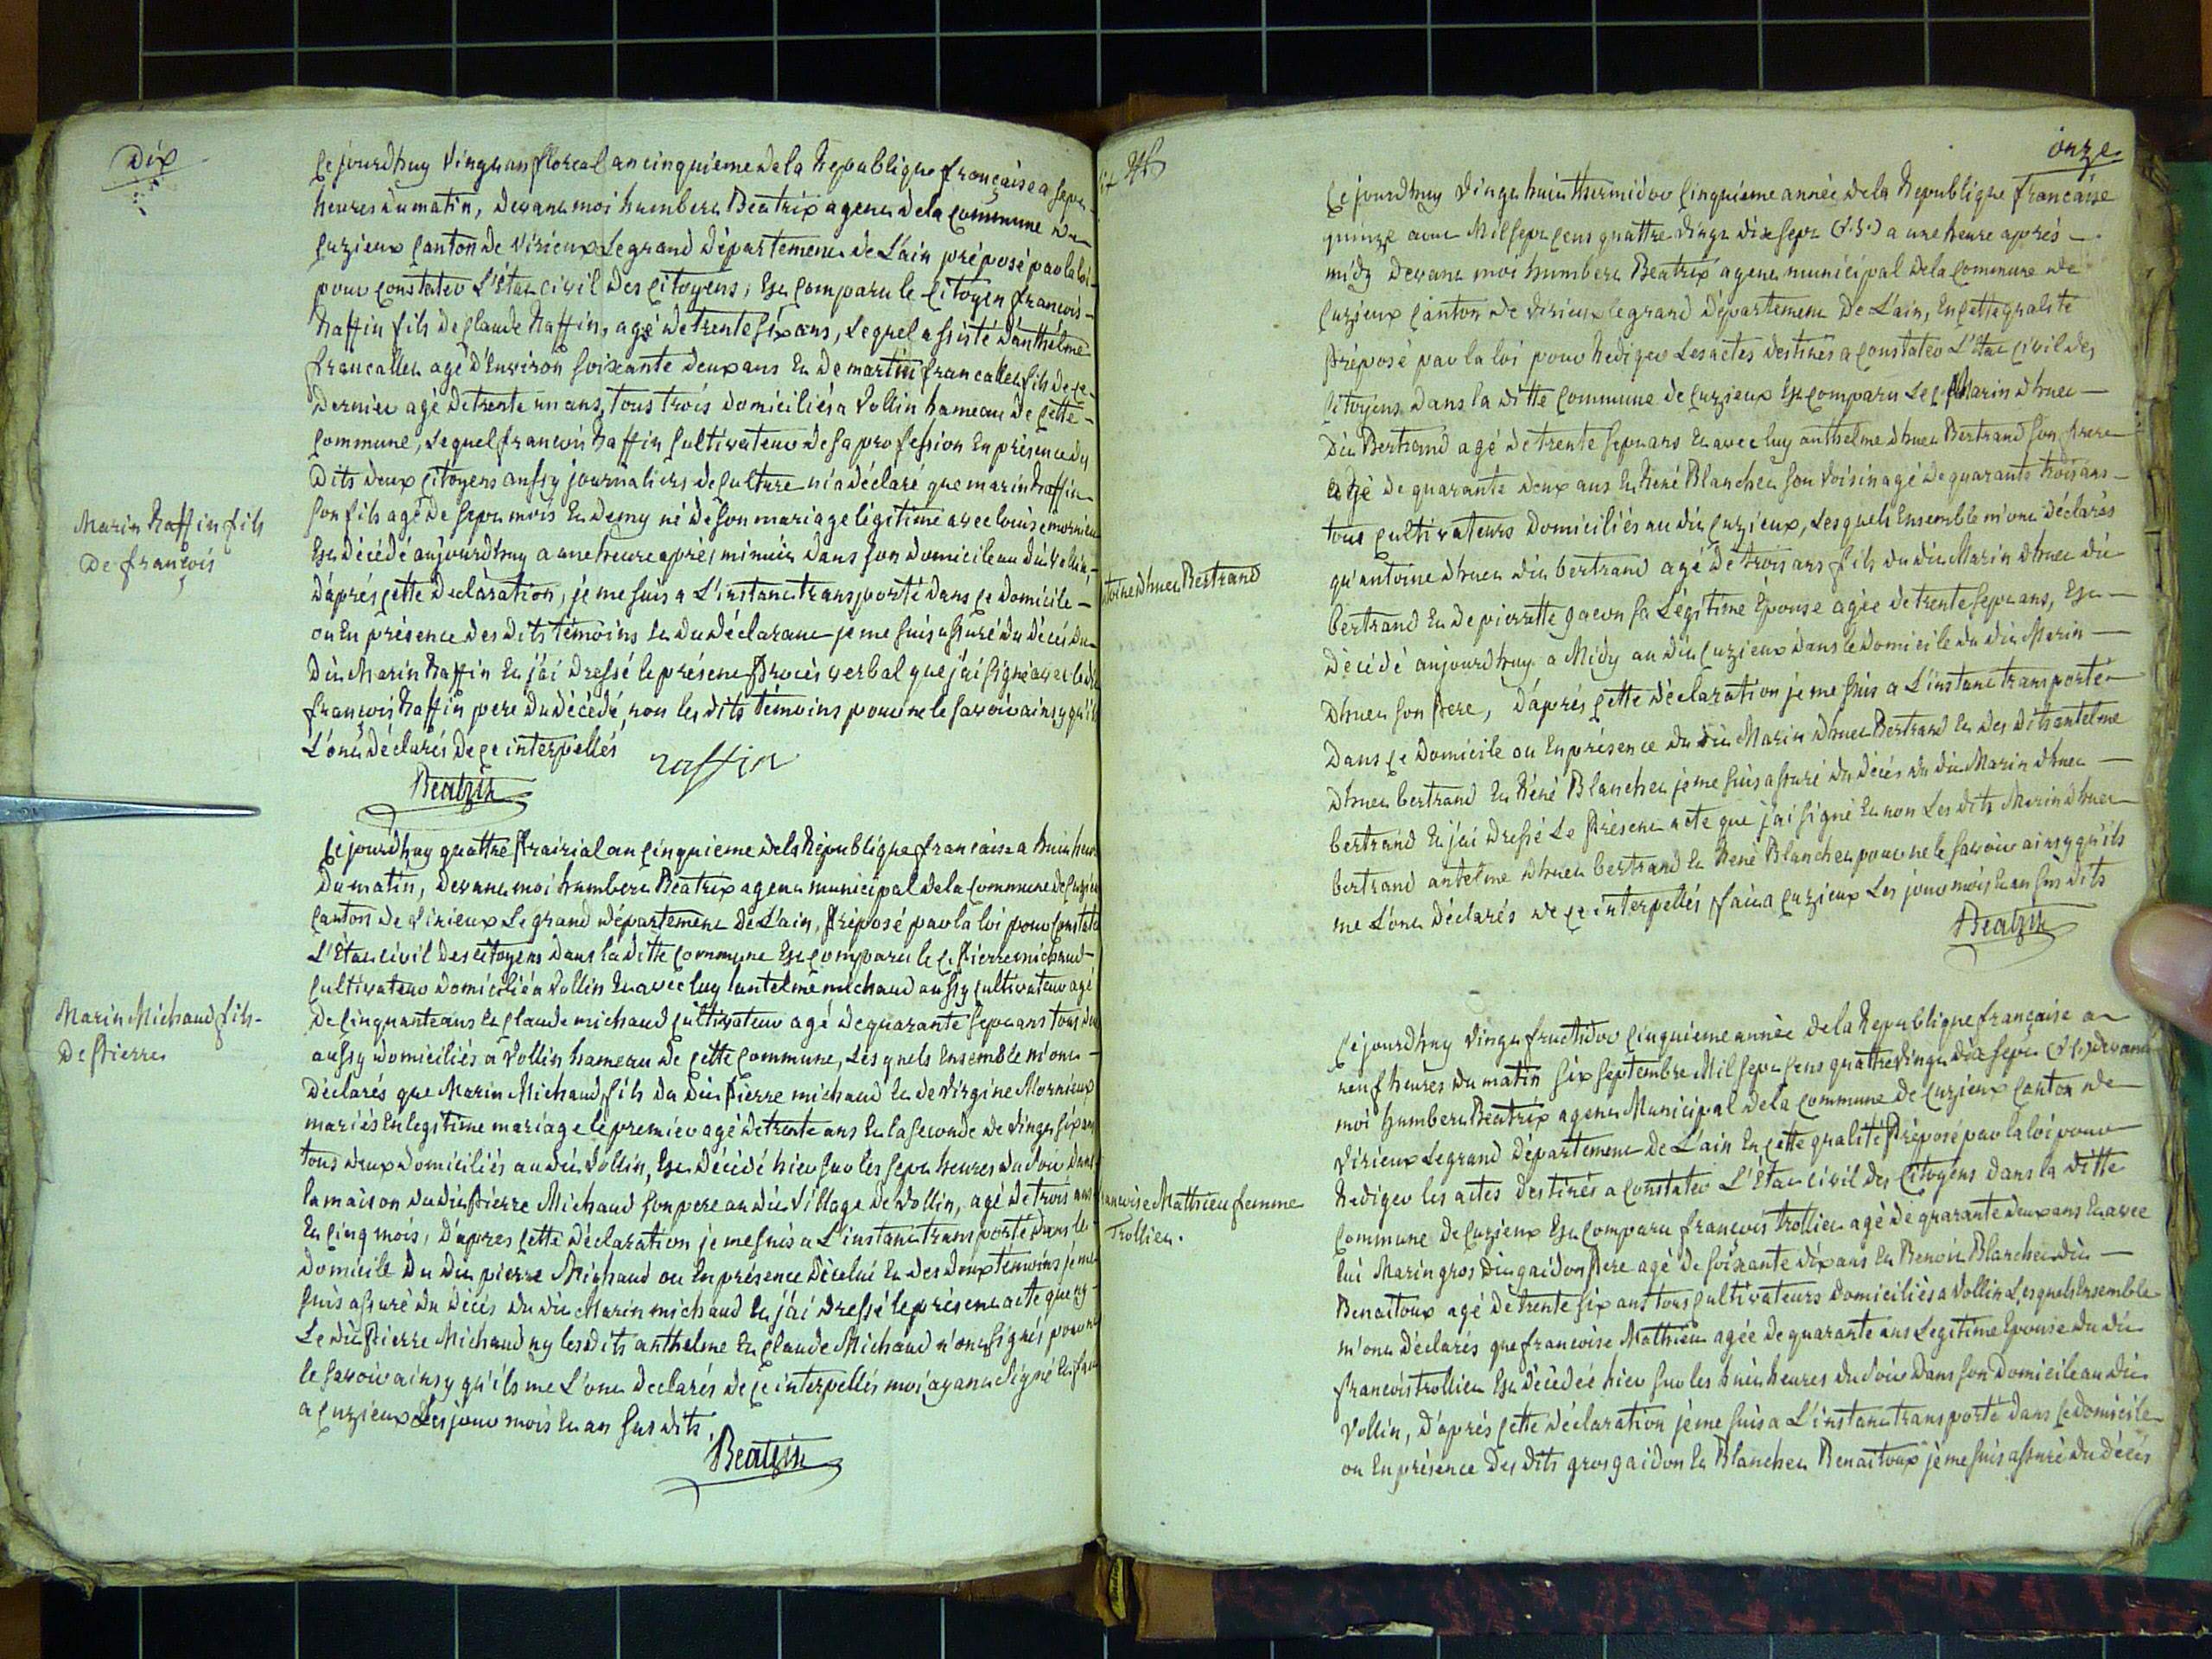 Dix
Cejourdhuy vingt un floreal an cinquieme de la Republique française a sept
heures du matin, devant moi humbert Beatrix agent de la commune de
Cuzieux canton de Virieux Legrand Département de L'ain préposé par la loi
pour constater L'état civil des citoyens, Est comparu le citoyen francois
Raffin fils de Claude Raffin, agé de trente six ans, Lequel assisté d'anthelme
francallet agé d'Environ soixante deux ans Et de martin francallet fils de ce
dernier agé de trente un ans, tous trois domiciliés a Vollin hameau de cette
commune, Lequel francois Raffin cultivateur de sa profession En présence des
dits deux citoyens aussy journaliers de culture m'a déclaré que marin Raffin
son fils agé de sept mois Et demy né de son mariage légitime avec louise mornieu
Est décédé aujourdhuy a une heure après minuit dans son domicile au dit Vollin,
d'après cette déclaration, je me suis a L'instant transporté dans ce domicile
ou En présence des dits témoins Et du déclarant je me suis assuré du décés du
dit Marin Raffin Et j'ai dressé le présent procès verbal que j'ai signé avec le dit
francois Raffin pere du décédé, non les dits témoins pour ne le savoir ainsy qu'ils
L'ont déclarés de ce interpellés
raffin
Beatrix
Marin Raffin fils
de francois
Cejourdhuy quattre Prairial an cinquieme de la République francaise a huit heures
du matin, devant moi humbert Béatrix agent municipal de la commune de Cuzieu
canton de Virieux Le grand département de L'ain, Préposé par la loi pour constater
L'Etat civil des citoyens dans la ditte commune Est comparu le C. Pierre michaud
cultivateur domicilié a Vollin Et avec luy lantelme michaud aussy cultivateur agé
de cinquante ans Et claude michaud cultivateur agé de quarante sept ans tous deux
aussy domiciliés a Vollin hameau de cette commune, Lesquels Ensemble m'ont
déclarés que Marin Michaud, fils du dit Pierre michaud Et de Virgine Mornieux
mariés En legitime mariage le premier agé de trente ans Et la seconde de vingt six ans
tous deux domiciliés au dit Vollin, Est décédé hier sur les sept heures du soir dans
la maison du dit Pierre Michaud son pere au dit village de Vollin, agé de trois ans
Et cinq mois, d'après cette déclaration je me suis a L'instant transporté dans le
domicile du dit pierre Michaud ou En présence d'icelui Et des deux temoins je me
suis assuré du décés du dit Marin michaud Et j'ai dressé le présent acte que ny
Le dit Pierre Michaud ny les dits anthelme Et claude Michaud n'ont signés pour ne
le savoir ainsy qu'ils me L'ont declarés de ce interpellés moi ayant signé Et fait
a Cuzieux Les jour mois Et an sus dits.
Beatrix
Marin Michaud fils
de Pierre
onze
Cejourdhuy vingt huit thermidor cinquieme année de la Republique francaise
quinze aout Mil sept cent quattre vingt dix sept (v.s.) a une heure après
midy devant moi humbert Beatrix agent municipal de la commune de
Cuzieux canton de Virieux le grand département de L'ain, En cette qualité
Préposé par la loi pour Rediger Les actes destinés a constater L'état civil des
citoyens dans la ditte commune de Cuzieux Est comparu Le C. Marin dhuet
dit Bertrand agé de trente sept ans Et avec luy anthelme dhuet Bertrand son frere
agé de quarante deux ans Et René Blanchet son voisin agé de quarante trois ans
tous cultivateurs domiciliés au dit Cuzieux, Lesquels Ensemble m'ont déclarés
qu'antoine dhuet dit bertrand agé de trois ans fils du dit Marin dhuet dit
bertrand Et de pierrette sa Légitime Epouse agée de trente sept ans, Est
décédé aujourdhuy a Midy au dit Cuzieux dans le domicile du dit Marin
dhuet son Pere, d'après cette déclaration je me suis a L'instant transporté
dans ce domicile ou En présence du dit Marin dhuet Bertrand Et des dits antelme
dhuet bertrand Et Réné Blanchet je me suis assuré du décés du dit Marin dhuet
bertrand Et j'ai dressé Le Présent acte que j'ai signé Et non Les dits Marin dhuet
bertrand antelme dhuet bertrand Et René Blanchet pour ne le savoir ainsy qu'ils
me L'ont déclarés de ce interpellés, fait a Cuzieux Les jour mois Et an sus dits
Beatrix
toine dhuet Bertrand
Cejourdhuy vingt fructidor cinquieme année de la Republique française a
neuf heures du matin six septembre Mil sept cens quattre vingt dix sept (v.s.) devant
moi humbert Beatrix agent Municipal de la commune de Cuzieux canton de
Virieux Le grand Département de L'ain En cette qualité Préposé par la loi pour
Rediger les actes destinés a constater L'Etat civil des citoyens dans la ditte
commune de Cuzieux Est comparu francois trollier agé de quarante deux ans Et avec
lui Marin gros dit gaidon Pere agé de soixante dix ans Et Benoit Blanchet dit
Benaitoux agé de trente six ans tous cultivateurs domiciliés a Vollin Lesquels Ensemble
m'ont déclarés que francoise Mathieu agée de quarante ans Legitime Epouse du dit
francois trollier Est décédée hier sur les huit heures du soir dans son domicile au dit
Vollin, d'après cette déclaration je me suis a L'instant transporté dans ce domicile
ou En présence des dits gros gaidon Et Blanchet Benaitoux je me suis assuré du décés
ancoise Matthieu femme
Trollier.